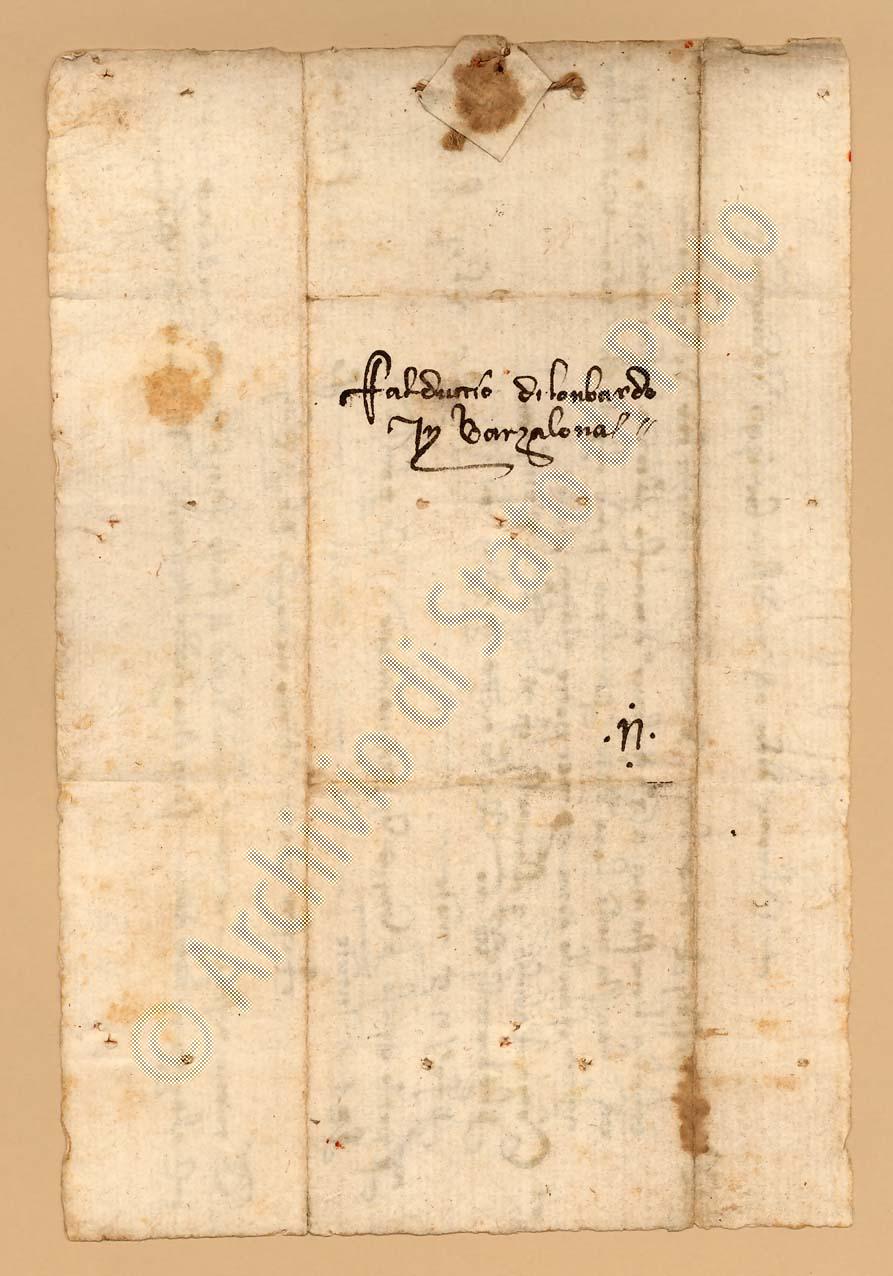 Falduccio di lonbardo
In Barzalona
.n.
© Archivio di Stato di Prato